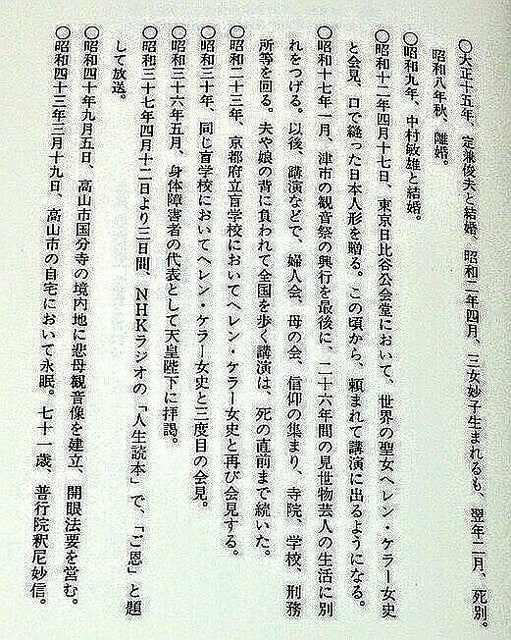 ○大正十五年、定兼俊夫と結婚、昭和二年四月、三女妙子生まれるも、翌年二月、死別。
昭和八年秋、離婚。
○昭和九年、中村敏雄と結婚。
○昭和十二年四月十七日、東京日比谷公会堂において、世界の聖女ヘレン・ケラー女史
と会見、口で縫った日本人形を贈る。この頃から、頼まれて講演に出るようになる。
○昭和十七年一月、津市の観音祭の興行を最後に、二十六年間の見世物芸人の生活に別
れをつげる。以後、講演などで、婦人会、母の会、信仰の集まり、寺院、学校、刑務
所等を回る。夫や娘の背に負われて全国を歩く講演は、死の直前まで続いた。
○昭和二十三年、京都府立盲学校においてヘレン・ケラー女史と再び会見する。
○昭和三十年、同じ盲学校においてヘレン・ケラー女史と三度目の会見。
○昭和三十六年五月、身体障害者の代表として天皇陛下に拝謁。
○昭和三十七年四月十二日より三日間、NHKラジオの「人生読本」で、「ご恩」と題
して放送。
○昭和四十年九月五日、高山市国分寺の境内地に悲母観音像を建立、開眼法要を営む。
○昭和四十三年三月十九日、高山市の自宅において永眠。七十一歳、善行院釈尼妙信。